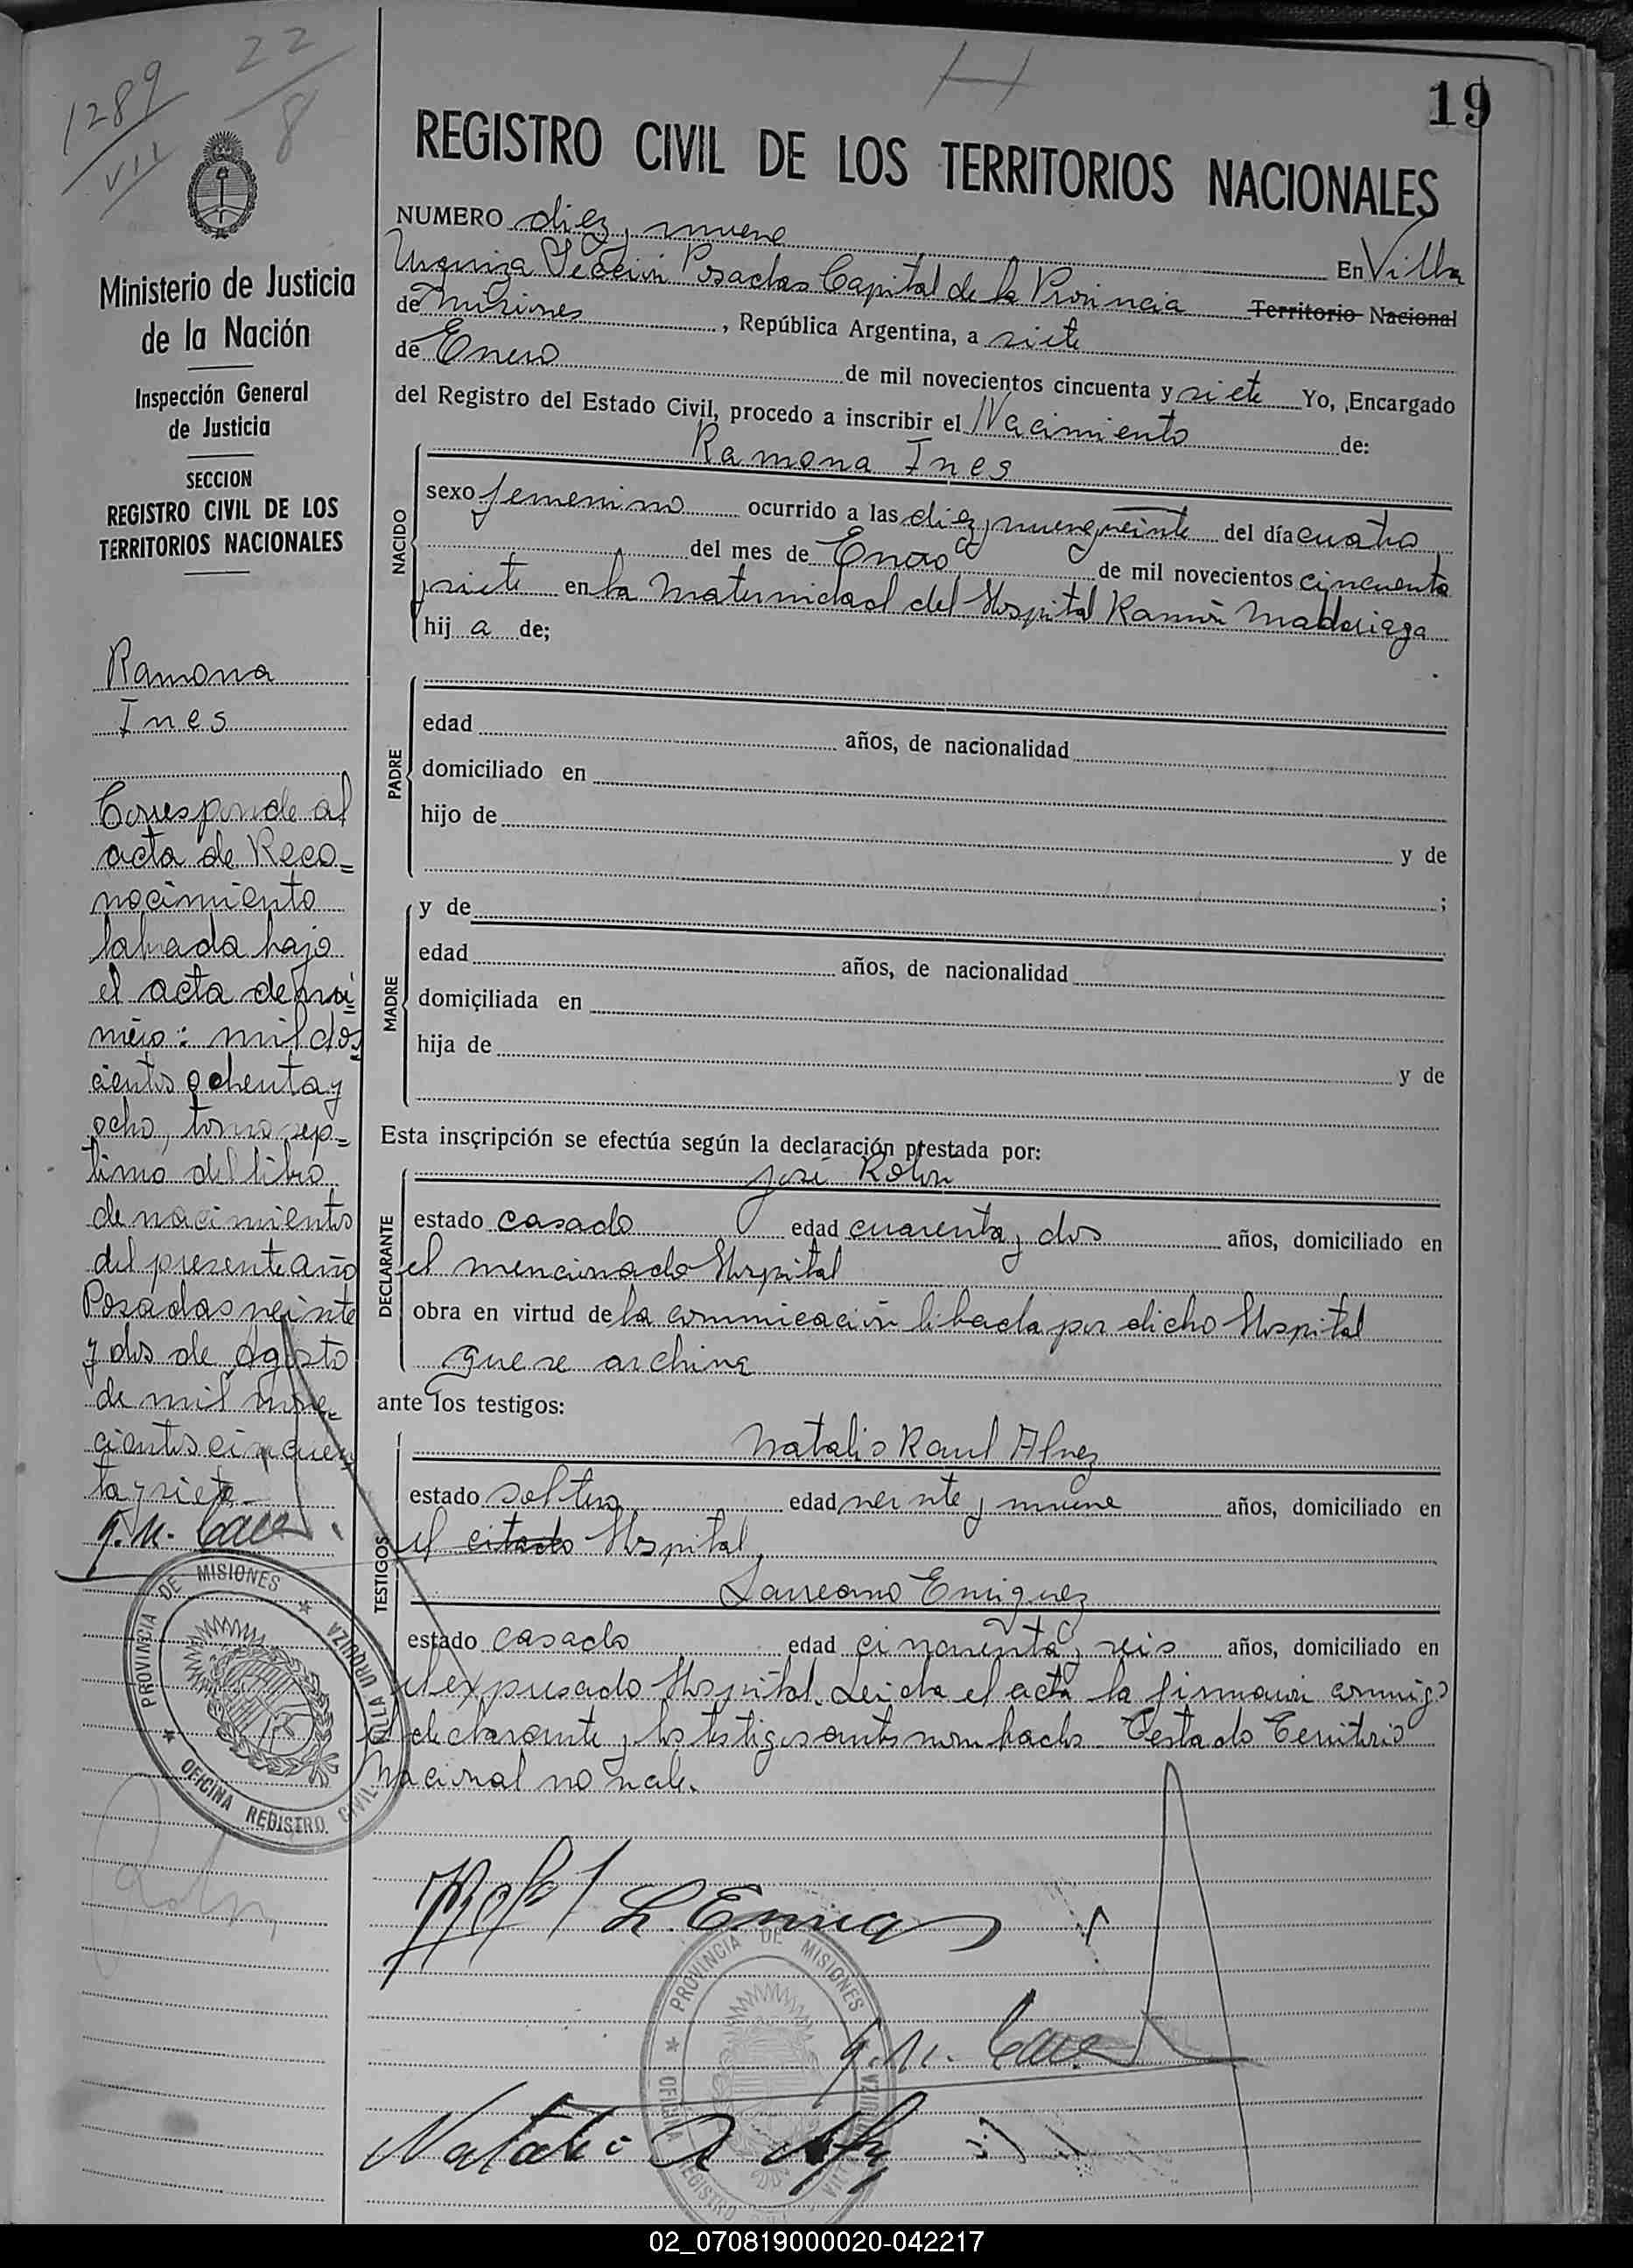 22
8
1289
VII
H
19
REGISTRO CIVIL DE LOS TERRITORIOS NACIONALES
NUMERO diez y nueve En Villa
Urquiza Sección Posadas Capital de la Provincia Territorio Nacional
de Misiones, República Argentina, a siete
de Enero de mil novecientos cincuenta y siete Yo, Encargado
del Registro del Estado Civil, procedo a inscribir el Nacimiento de:
Ramona Ines
NACIDO
sexo femenino ocurrido a las diez y nueve y veinte del día cuatro
del mes de Enero de mil novecientos cincuenta
y siete en la Maternidad del Hospital Ramón Madariaga
hij a de;
PADRE
edad años, de nacionalidad
domiciliado en
hijo de
y de
;
MADRE
y de
edad años, de nacionalidad
domiciliada en
hija de
y de
Esta inscripción se efectúa según la declaración prestada por:
José Rolon
DECLARANTE
estado casado edad cuarenta y dos años, domiciliado en
el mencionado Hospital
obra en virtud de la comunicación librada por dicho Hospital
que se archiva
ante los testigos:
Natalio Raul Alvez
TESTIGOS
estado soltero edad veinte y nueve años, domiciliado en
el citado Hospital
Laureano Enriquez
estado casado edad cincuenta y seis años, domiciliado en
el expresado Hospital. Leida el acta la firmaron conmigo
el declarante y los testigos antes nombrados. Testado Territorio
Nacional no vale.
L. Enriq
PROVINCIA DE MISIONES
VILLA URQUIZA
OFICINA REGISTRO
Natalio R Alv
Ministerio de Justicia
de la Nación
Inspección General
de Justicia
SECCION
REGISTRO CIVIL DE LOS
TERRITORIOS NACIONALES
Ramona
Ines
Corresponde al
acta de Reco=
nocimiento
labrada bajo
el acta de nú
mero: mil dos
cientos ochenta y
ocho, tomo sep=
timo del libro
de nacimientos
del presente año
Posadas veinte
y dos de Agosto
de mil nove-
cientos cincuen
ta y siete-
PROVINCIA DE MISIONES
VILLA URQUIZA
OFICINA REGISTRO CIVIL
02_070819000020-042217